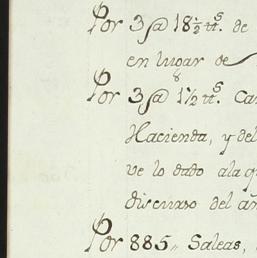 Por 3@ 18½ tt.s de
en lugar de
8
Por 3@ 1½ tt.s Car
Hacienda, y del
ve lo dado ala q
discurso del añ
Por 885,, Saleas,